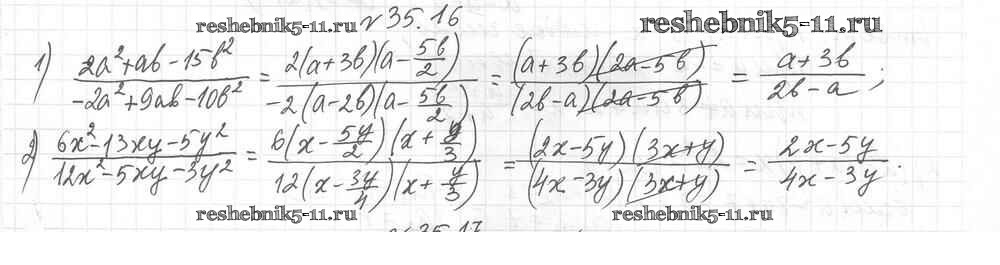 reshebnik5-11.ru № 35.16 reshebnik5-11.ru
1) (2a²+ab-15b²)/(-2a²+9ab-10b²) = (2(a+3b)(a-5b/2))/(-2(a-2b)(a-5b/2)) = ((a+3b)(2a-5b))/((2b-a)(2a-5b)) = (a+3b)/(2b-a);
2) (6x²-13xy-5y²)/(12x²-5xy-3y²) = (6(x-5y/2)(x+y/3))/(12(x-3y/4)(x+y/3)) = ((2x-5y)(3x+y))/((4x-3y)(3x+y)) = (2x-5y)/(4x-3y).
reshebnik5-11.ru reshebnik5-11.ru
№ 35.17